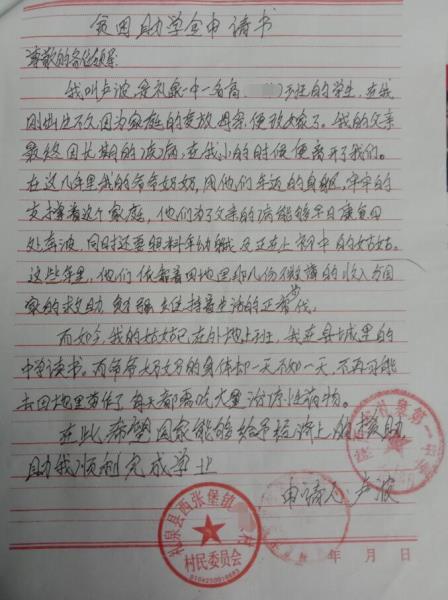 贫困助学金申请书
尊敬的各位领导:
我叫卢波,是礼泉一中一名高 班的学生,在我
刚出生不久因为家庭的变故母亲便改嫁了。我的父亲
最终因长期的疾病,在我小的时候便离开了我们。
在这几年里我的爷爷奶奶,用他们年迈的身躯,牢牢的
支撑着这个家庭,他们为了父亲的病能够早日康复四
处奔波,同时还要照料年幼的我及正在上初中的姑姑。
这些年里,他们依靠着田地里那几份微薄的收入与国
家的救助,维持着生活的正常
而如今,我的姑姑已在外地上班,我在县城里的
中学读书。而爷爷奶奶的身体却一天不如一天,不再可能
去田地里劳作了,每天都需吃大量治疗性药物。
在此,希望国家能够给予经济上的援助
助我顺利完成学业
申请人:卢波
年 月 日
礼泉县西张堡镇 村
村民委员会